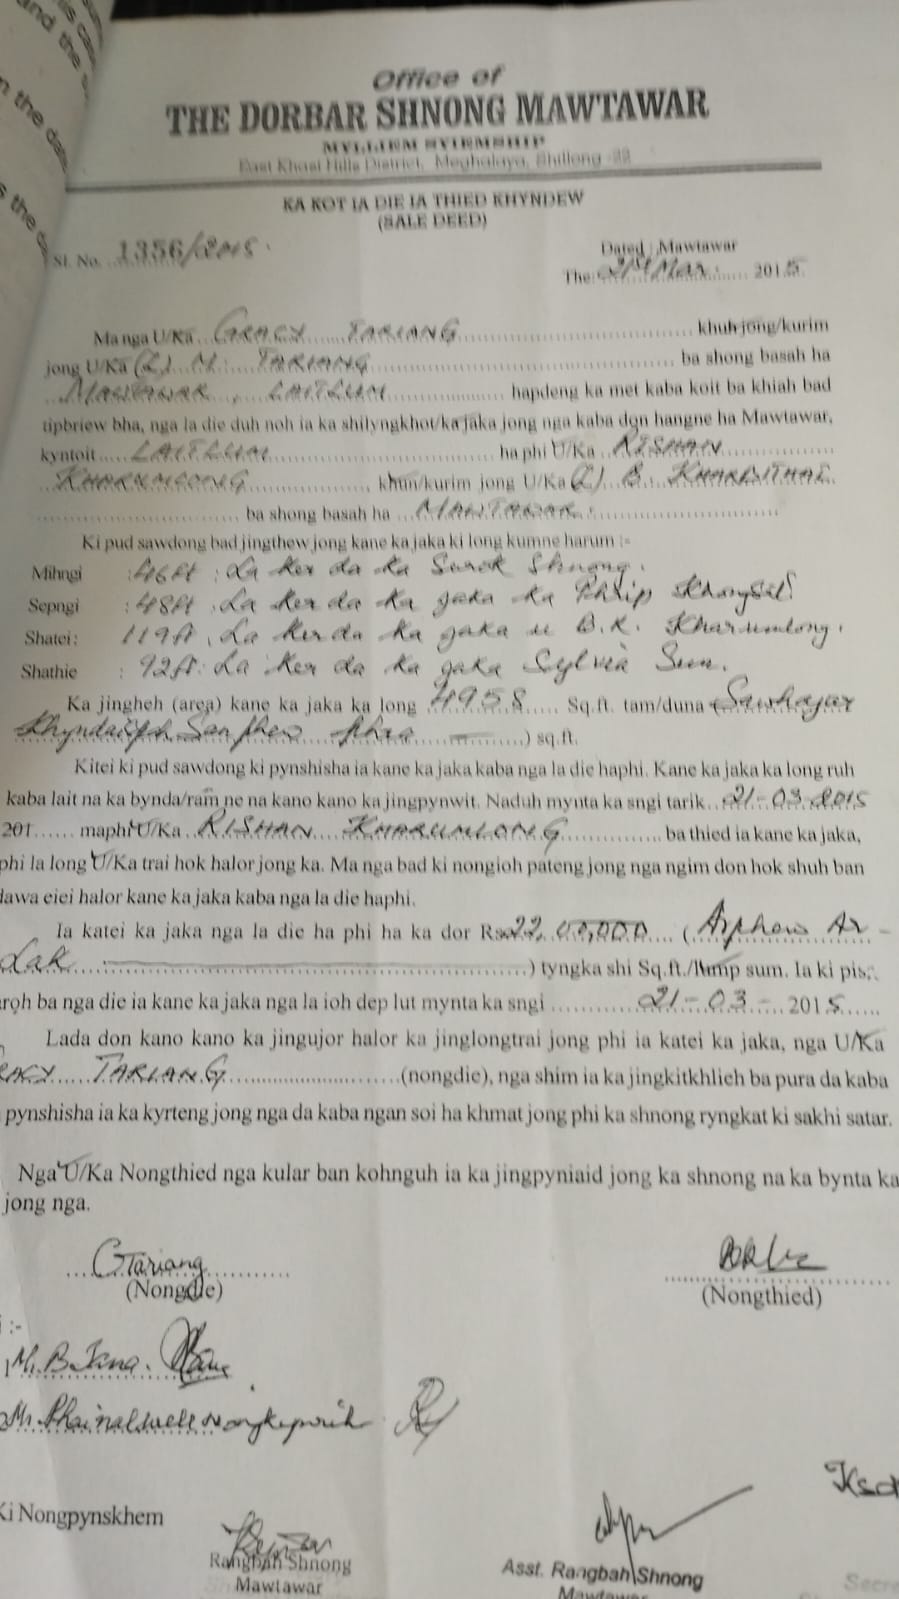 Office of
THE DORBAR SHNONG MAWTAWAR
MYLLIEM SYIEMSHIP
East Khasi Hills District, Meghalaya, Shillong -22
KA KOT IA DIE IA THIED KHYNDEW
(SALE DEED)
Sl. No. 1356/2015.
Dated : Mawtawar
The: 21st Mar. 2015.
Ma nga U/Ka GRACY TARIANG khun jong/kurim
jong U/Ka (L) M. TARIANG ba shong basah ha
MAWTAWAR, LAITLUM hapdeng ka met kaba koit ba khiah bad
tipbriew bha, nga la die duh noh ia ka shilyngkhot/ka jaka jong nga kaba don hangne ha Mawtawar,
kyntoit LAITLUM ha phi U/Ka RISHAN
KHARUMLONG khun/kurim jong U/Ka (L) B. KHARBITHAI
ba shong basah ha MAWTAWAR.
Ki pud sawdong bad jingthew jong kane ka jaka ki long kumne harum :-
Mihngi : 46ft : La ker da ka Surok Shnong.
Sepngi : 48ft . La ker da ka jaka ka Philip Khongsit.
Shatei : 119ft . La ker da ka jaka u B.K. Kharumlong.
Shathie : 92ft. La ker da ka jaka Sylvia Sun.
Ka jingheh (area) kane ka jaka ka long 4958 Sq.ft. tam/duna (Sawhajar
Khyndaispah Sanphew phra) sq.ft.
Kitei ki pud sawdong ki pynshisha ia kane ka jaka kaba nga la die haphi. Kane ka jaka ka long ruh
kaba lait na ka bynda/ram ne na kano kano ka jingpynwit. Naduh mynta ka sngi tarik 21-03-2015
201 maphi U/Ka RISHAN KHARUMLONG ba thied ia kane ka jaka,
phi la long U/Ka trai hok halor jong ka. Ma nga bad ki nongioh pateng jong nga ngim don hok shuh ban
dawa eiei halor kane ka jaka kaba nga la die haphi.
Ia katei ka jaka nga la die ha phi ha ka dor Rs. 22,00,000 (Arphew Ar
Lak) tyngka shi Sq.ft./lump sum. Ia ki pis
aroh ba nga die ia kane ka jaka nga la ioh dep lut mynta ka sngi 21-03- 2015
Lada don kano kano ka jingujor halor ka jinglongtrai jong phi ia katei ka jaka, nga U/Ka
RACY TARIANG (nongdie), nga shim ia ka jingkitkhlieh ba pura da kaba
pynshisha ia ka kyrteng jong nga da kaba ngan soi ha khmat jong phi ka shnong ryngkat ki sakhi satar.
Nga U/Ka Nongthied nga kular ban kohnguh ia ka jingpyniaid jong ka shnong na ka bynta ka
jong nga.
GTariang
(Nongdie)
(Nongthied)
:-
Ki Nongpynskhem
Rangbah Shnong
Mawtawar
Asst. Rangbah Shnong
Mawtawar